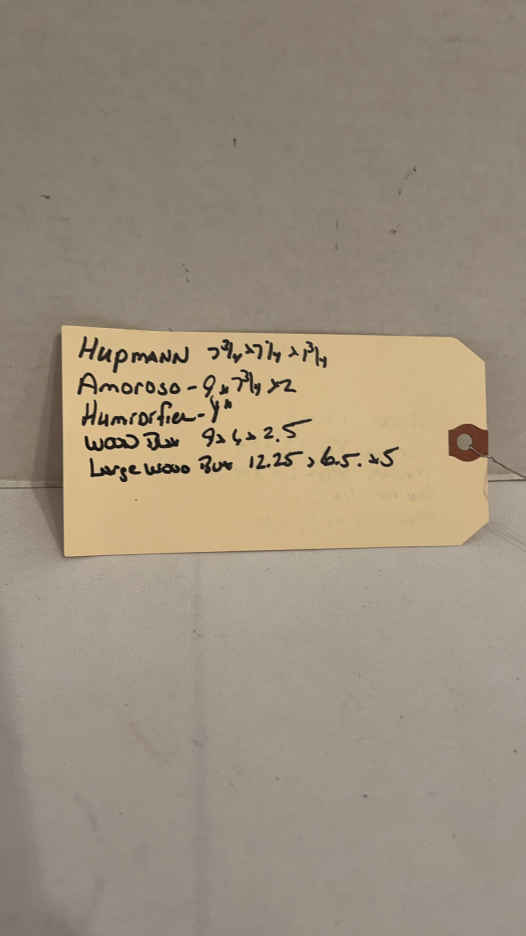 HupmANN 7 3/4 x 7 1/4 x 1 3/4
Amoroso - 9 x 7 3/4 x 2
Humidifier - 4"
Wood Box 9 x 6 x 2.5
Large Wood Box 12.25 x 6.5. x 5